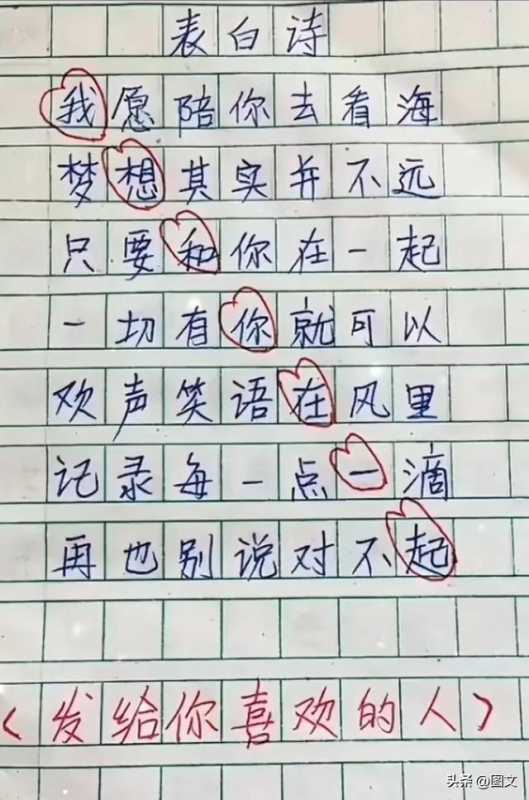 表白诗
我愿陪你去看海
梦想其实并不远
只要和你在一起
一切有你就可以
欢声笑语在风里
记录每一点一滴
再也别说对不起
<发给你喜欢的人>
头条 @图文